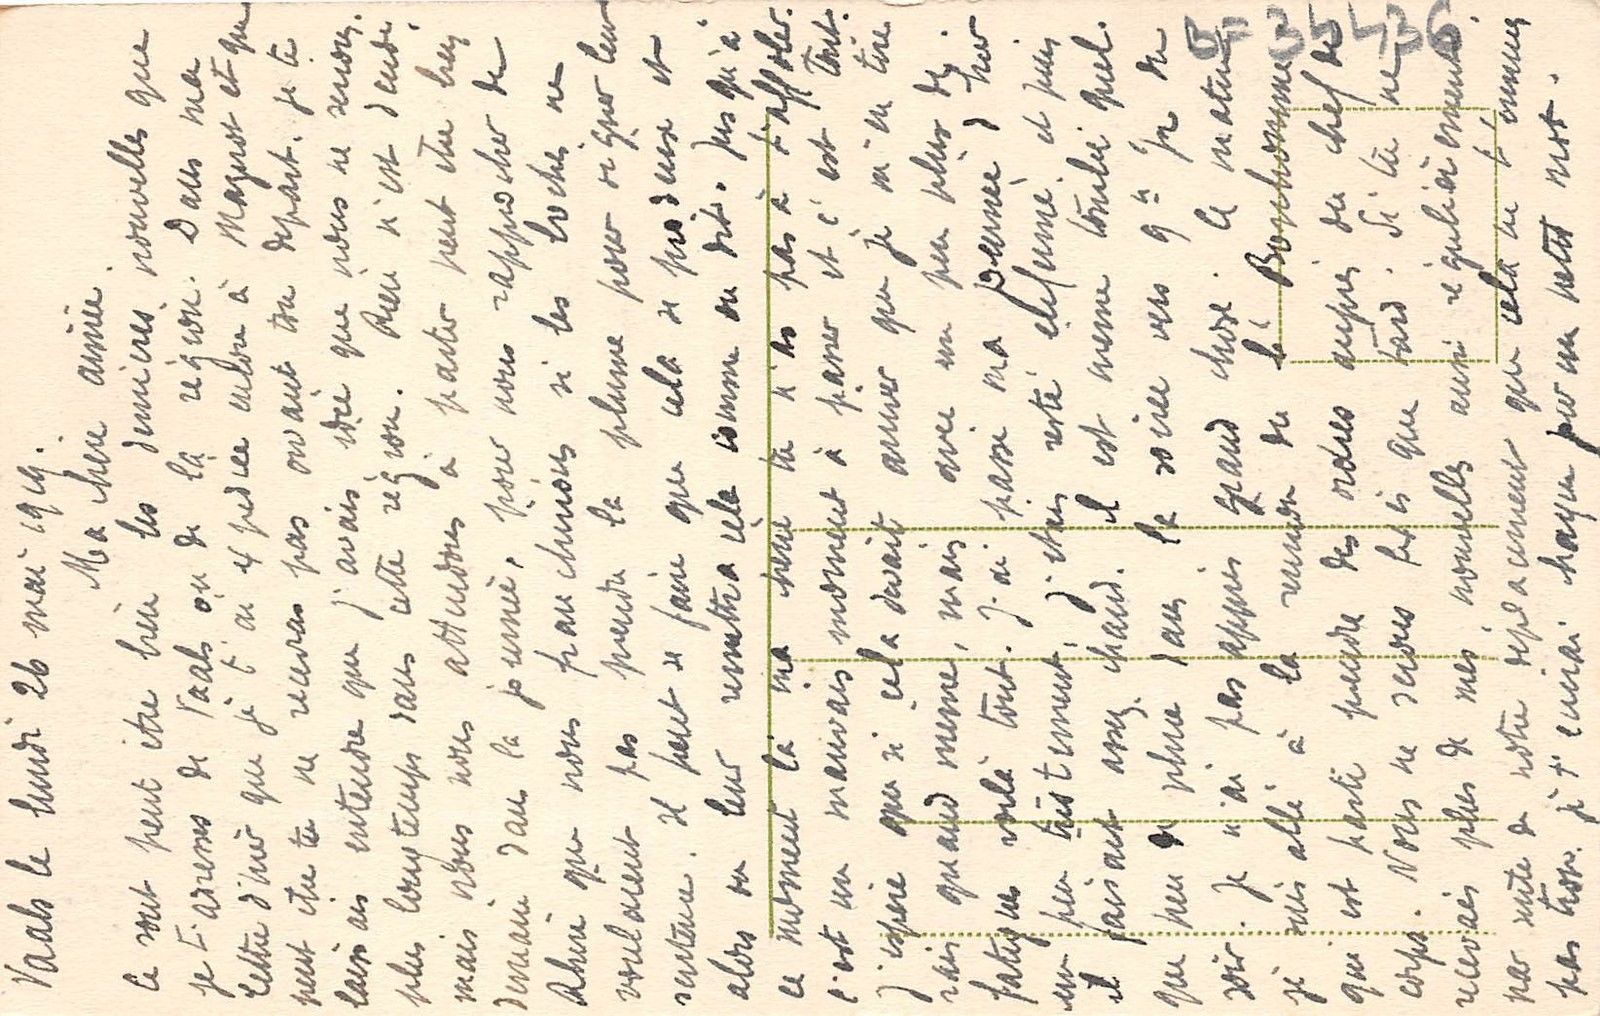 Vaals le lundi 26 mai 1919.
Ma chère aimée.
Ce sont peut être bien les dernières nouvelles que
je t'adresse de Vaals ou de la région. Dans ma
lettre d'hier que je t'ai expédiée encore à Magnot et que
peut etre tu ne recevras pas avant ton départ. Je te
laissais entendre que j'avais idée que nous ne serions
plus longtemps dans cette région. Rien n'est décidé,
mais nous nous attendons à partir peut etre bien
demain dans la journée, pour nous rapprocher de
Rhin que nous franchirions si les boches ne
voulaient pas prendre la plume pour signer leur
sentence. Il peut se faire que cela se produise et
alors on leur rentrera dedans comme on dit. Jusqu'à
ce moment là ma chérie tu n'as pas à t'affoler.
c'est un mauvais moment à passer et c'est tout.
J'espère que si cela devait arriver que je m'en tire
rais quand meme, mais avec un peu plus de
fatigues voilà tout. J'ai passé ma journée d'hier
un peu tristement, j'étais resté enfermé et puis
il faisait assez chaud. Il est meme tombé quel
que peu de pluie dans la soirée vers 9 h du
soir. Je n'ai pas appris grand chose. Ce matin
je suis allé à la réunion du Ct Bonhomme
qui est parti prendre des ordres auprès du chef de
corps. Nous ne serons fixés que tard. Si tu ne
recevais plus de mes nouvelles aussi régulièrement
par suite de notre déplacement que cela ne t'ennuie
pas trop. Je t'enverrai chaque jour un petit mot.